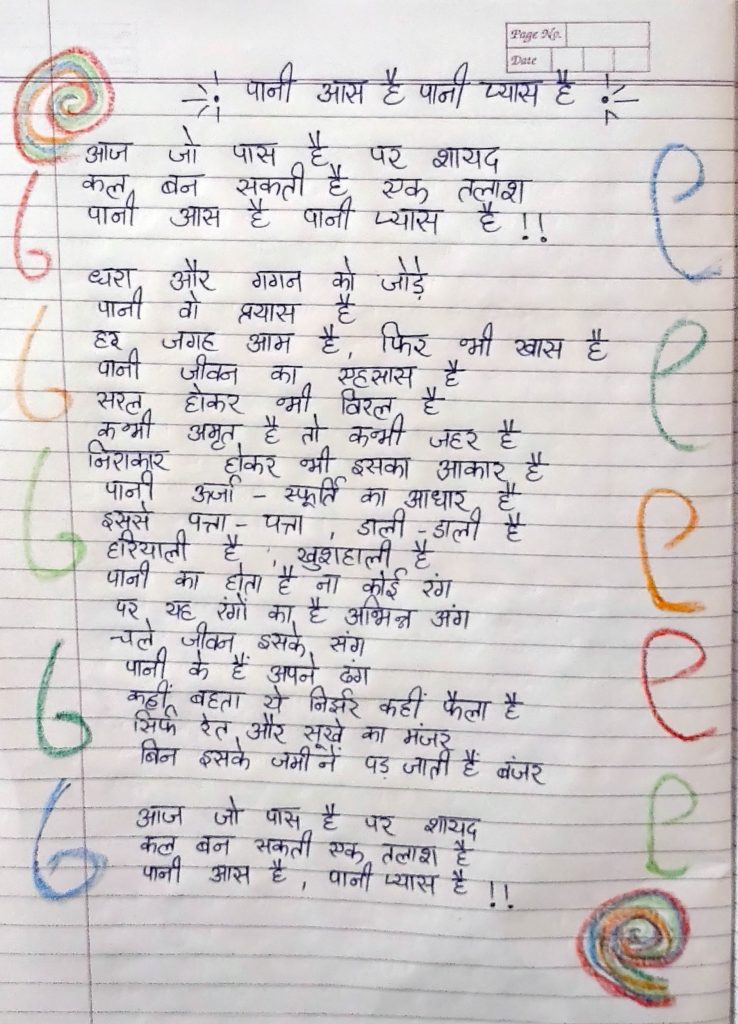 Page No.
Date
पानी आस है पानी प्यास है
आज जो पास है पर शायद
कल बन सकती है एक तलाश
पानी आस है पानी प्यास है !!
धरा और गगन को जोड़े
पानी वो प्रयास है
हर जगह आम है, फिर भी खास है
पानी जीवन का एहसास है
सरल होकर भी विरल है
कभी अमृत है तो कभी जहर है
निराकार होकर भी इसका आकार है
पानी ऊर्जा - स्फूर्ति का आधार है
इससे पत्ता - पत्ता , डाली - डाली है
हरियाली है , खुशहाली है
पानी का होता है ना कोई रंग
पर यह रंगों का है अभिन्न अंग
चले जीवन इसके संग
पानी के हैं अपने ढंग
कहीं बहता ये निर्झर कहीं फैला है
सिर्फ रेत और सूखे का मंजर
बिन इसके जमीनें पड़ जाती हैं बंजर
आज जो पास है पर शायद
कल बन सकती एक तलाश है
पानी आस है , पानी प्यास है !!